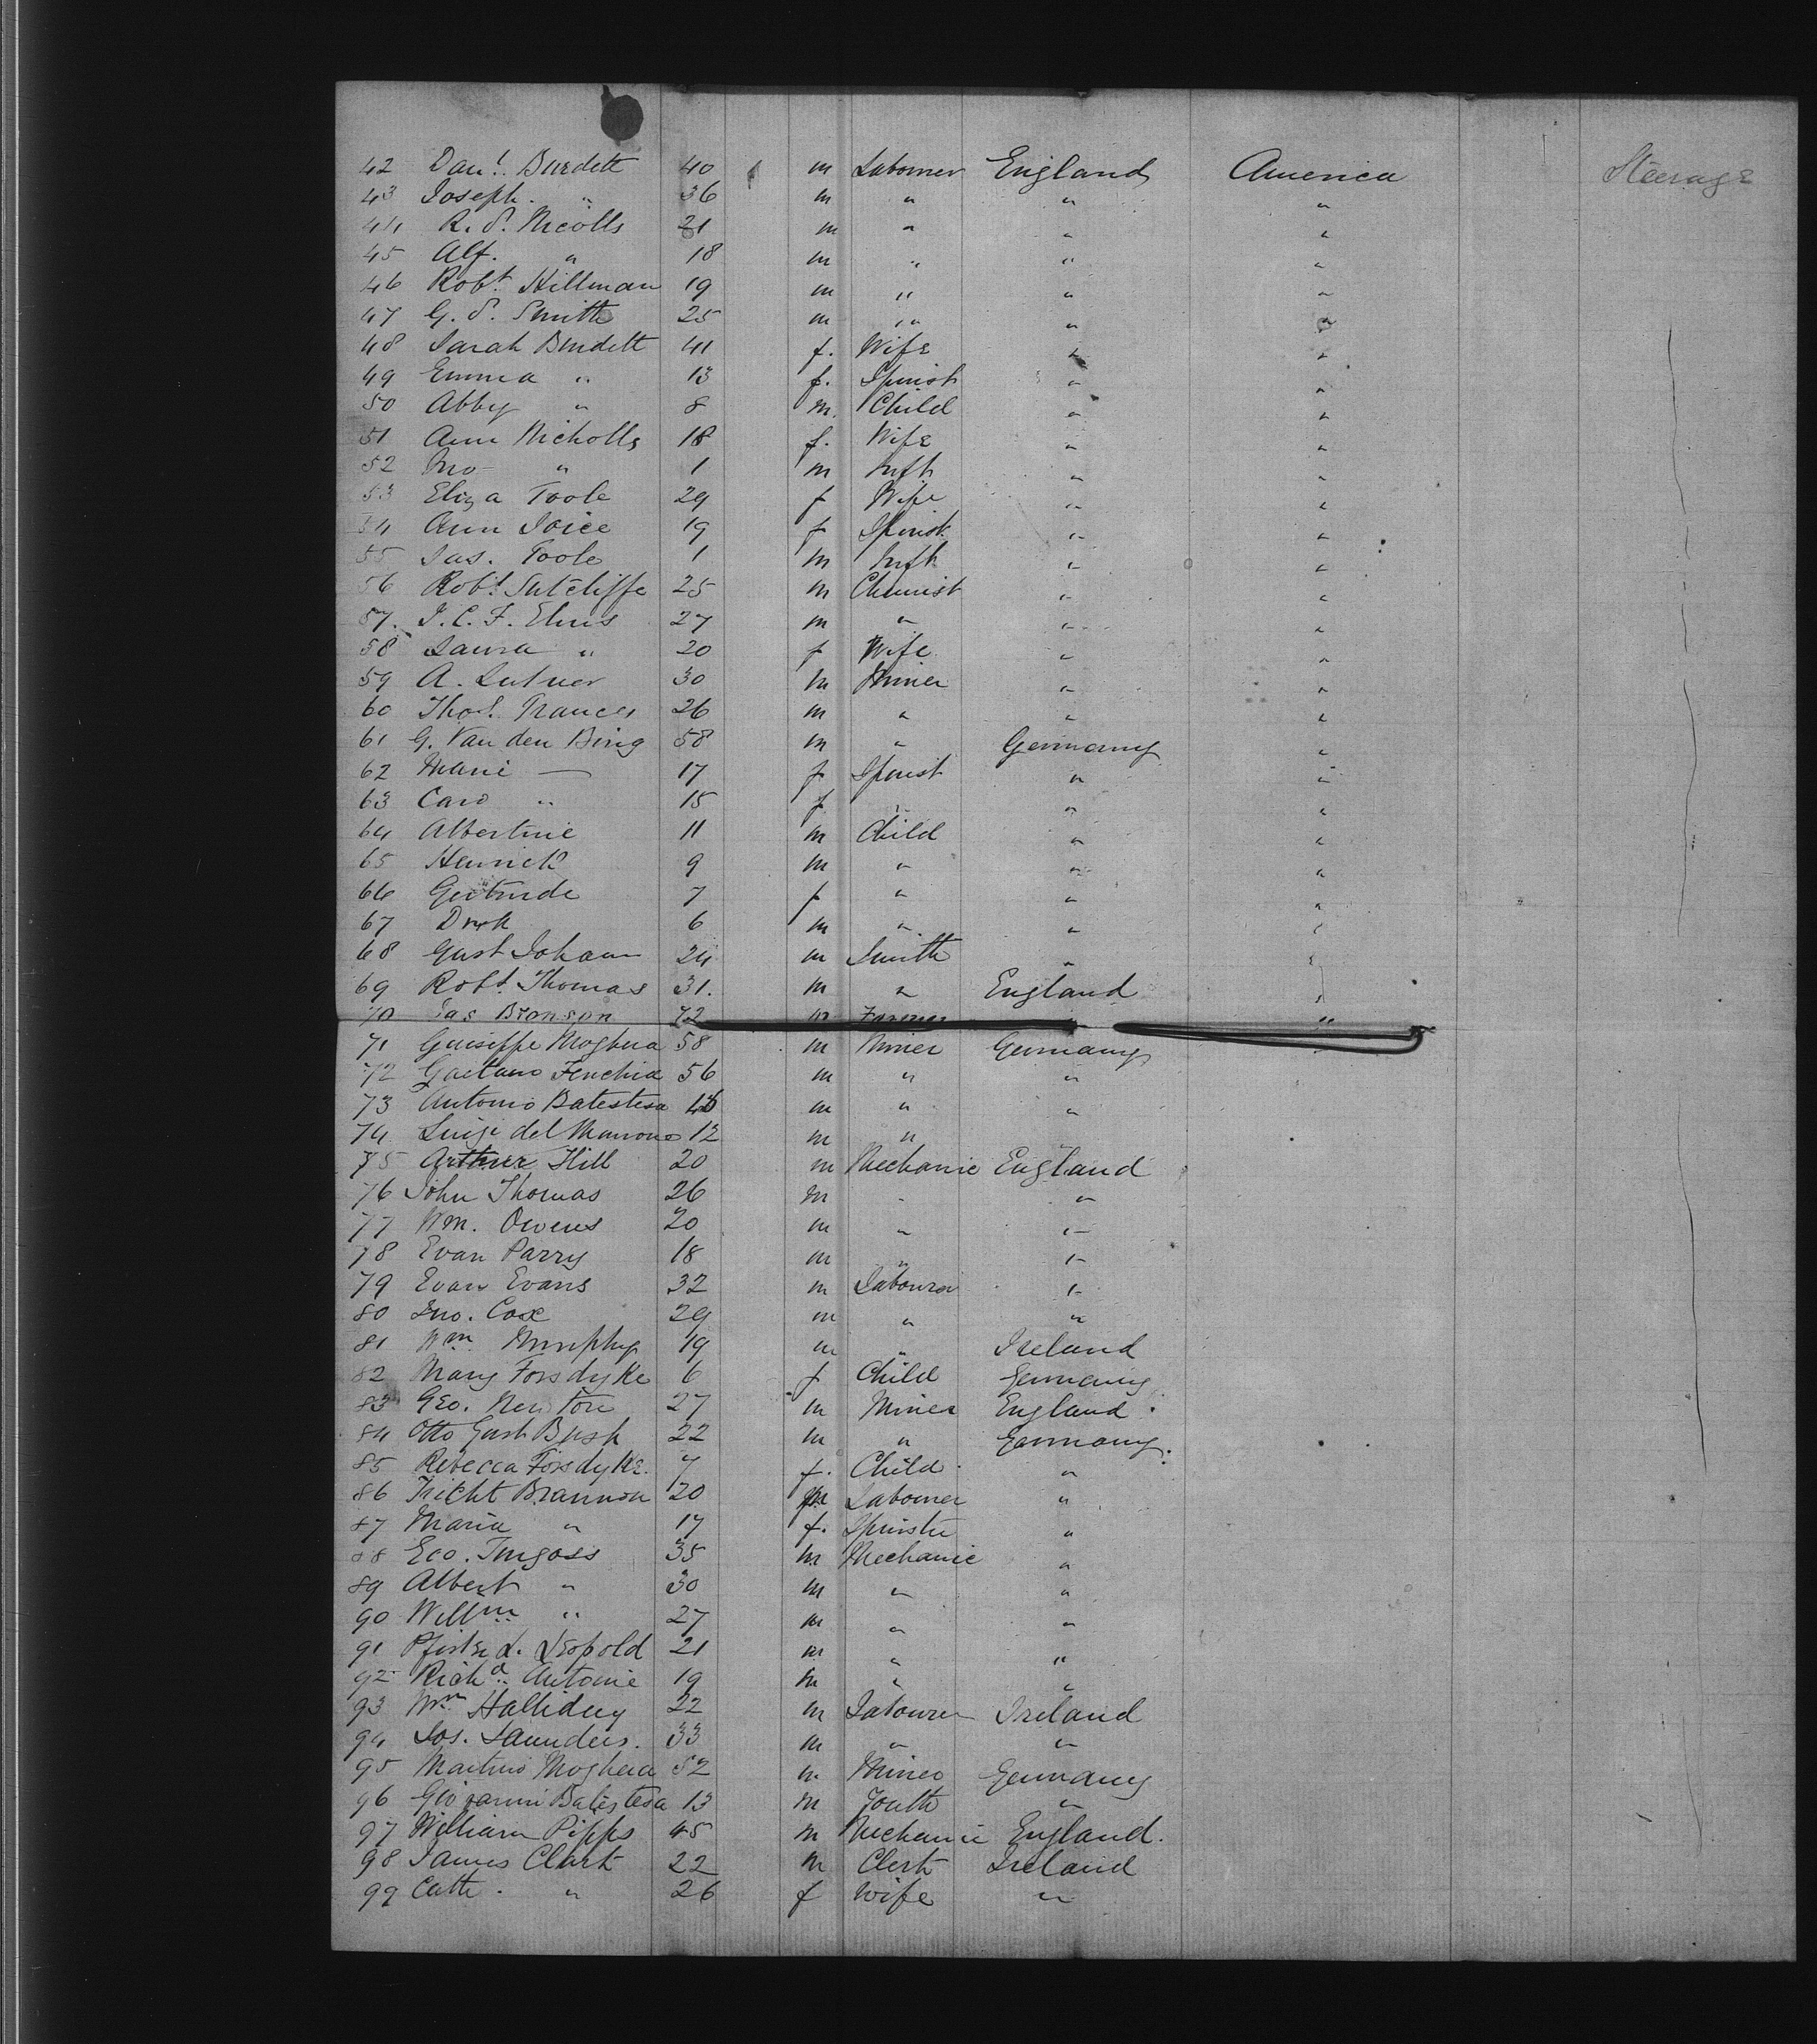 42 Danl. Burdett 40 m Labourer England America Steerage
43 Joseph. " 36 m " " "
44 R. S. Nicolls 21 m " " "
45 Alf. " 18 m " " "
46 Robt. Hillman 19 m " " "
47 G. S. Smith 25 m " " "
48 Sarah Burdett 41 f. Wife " "
49 Emma " 13 f. Spinstr " "
50 Abby " 8 m. Child " "
51 Ann Nicholls 18 f. Wife " "
52 Jno " 1 m Inft " "
53 Eliza Toole 29 f Wife " "
54 Ann Joice 19 f Spinst " "
55 Jas. Toole 1 m Inft " "
56 Robt. Sutcliffe 25 m Chemist " "
57. J. C. F. Elms 27 m " " "
58 Laura " 20 f Wife " "
59 A. Lutner 30 m Miner " "
60 Thos. Frances 26 m " " "
61 G. Van den Bing 58 m " Germany "
62 Marie — 17 f Spinst " "
63 Caro " 15 f " " "
64 Albertine 11 m Child " "
65 Henrich 9 m " " "
66 Gertrude 7 f " " "
67 6 m " " "
68 Gust Johann 24 m Smith " "
69 Robt. Thomas 31. m " England "
70 Jas Bronson 72 m Farmer "
71 Guiseppe Moghera 58 m Miner Germany "
72 Gaetano Fenchia 56 m " "
73 Antonio Batestesa m " "
74 Luigi del Manono 12 m "
75 Arthur Hill 20 m Mechanic England
76 John Thomas 26 m " "
77 Wm. Owens 20 m " "
78 Evan Parry 18 m " "
79 Evan Evans 32 m Labourer "
80 Jno. Cox 29 m " "
81 Wm. Murphy 19 m " Ireland
82 Mary Forsdyke 6 f Child Germany
83 Geo. Newton 27 m Miner England
84 Otto Gust Bush 22 m " Germany.
85 Rebecca Forsdyke. 7 f. Child "
86 Tricht Brannon 20 m Labourer "
87 Maria " 17 f. Spinster "
88 Eco. Imgoss 35 m Mechanic "
89 Albert " 30 m " "
90 Willm " 27 m " "
91 Leopold 21 m " "
92 Richd. Antonie 19 m " "
93 Wm Halliday 22 m Labourer Ireland
94 Jos. Saunders. 33 m " "
95 Martino Moghera 52 m Miner Germany
96 Giovanni Batestesa 13 m Youth "
97 William Pipps 45 m Mechanic England.
98 James Clark 22 m Clerk Ireland
99 Cath. " 26 f Wife "